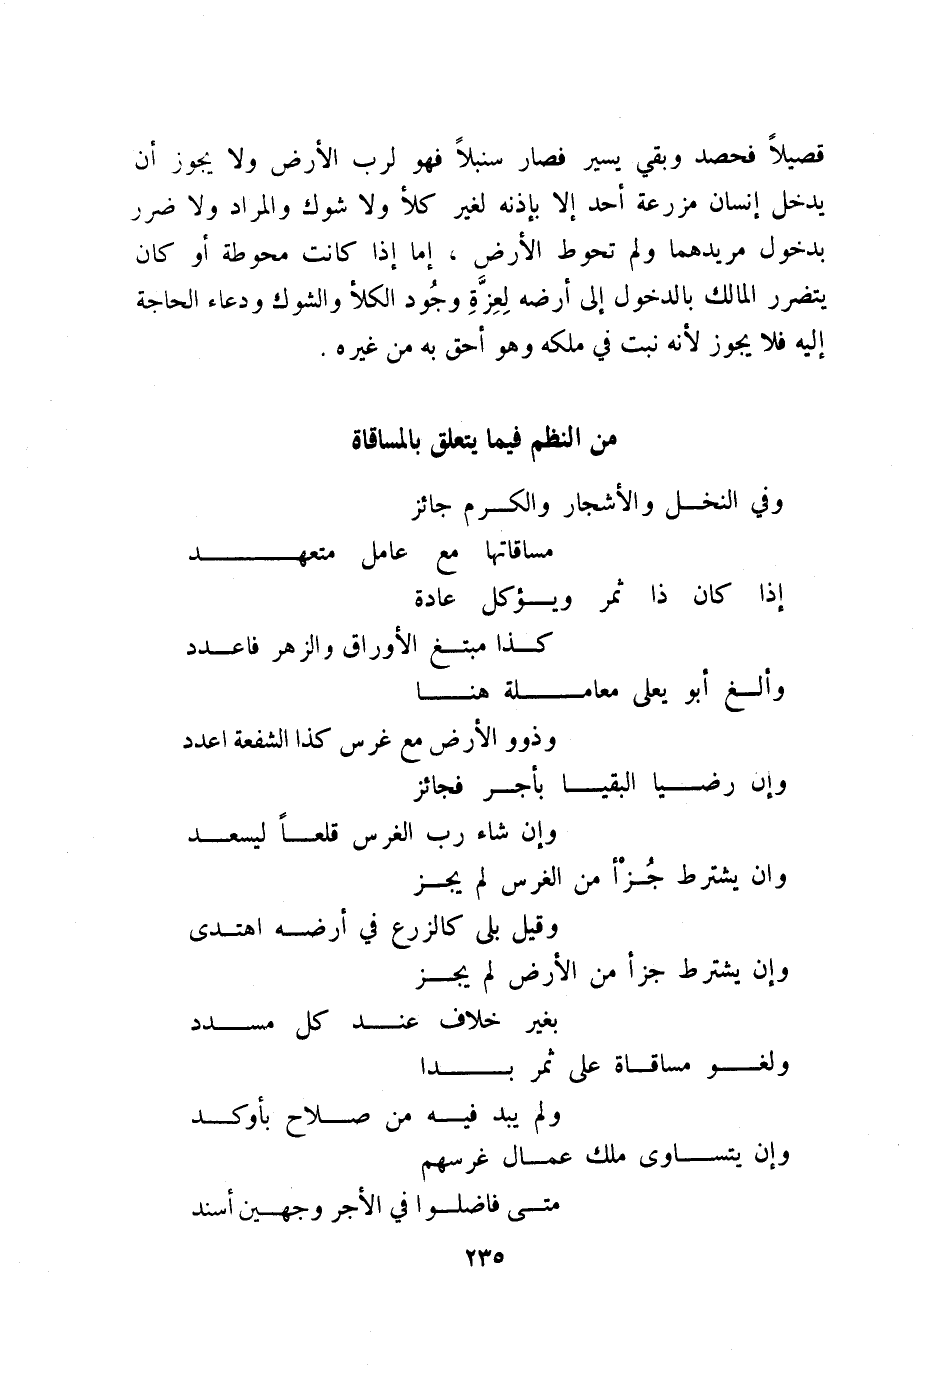 قصيلاً فحصد وبقي يسير فصار سنبلاً فهو لرب الأرض ولا يجوز أن
يدخل إنسان مزرعة أحد إلا بإذنه لغير كلأ ولا شوك والمراد ولا ضرر
بدخول مريدهما ولم تحوط الأرض ، إما إذا كانت محوطة أو كان
يتضرر المالك بالدخول إلى أرضه لِعِزَّةِ وجُود الكلأ والشوك ودعاء الحاجة
إليه فلا يجوز لأنه نبت في ملكه وهو أحق به من غيره .
من النظم فيما يتعلق بالمساقاة
وفي النخل والأشجار والكرم جائز
مساقاتها مع عامل متعهد
إذا كان ذا ثمر ويؤكل عادة
كذا مبتغ الأوراق والزهر فاعدد
وألغ أبو يعلى معاملة هنا
وذوو الأرض مع غرس كذا الشفعة اعدد
وإن رضيا البقيا بأجر فجائز
وإن شاء رب الغرس قلعاً ليسعد
وان يشترط جُزْأ من الغرس لم يجز
وقيل بلى كالزرع في أرضه اهتدى
وإن يشترط جزأ من الأرض لم يجز
بغير خلاف عند كل مسدد
ولغو مساقاة على ثمر بدا
ولم يبد فيه من صلاح بأوكد
وإن يتساوى ملك عمال غرسهم
متى فاضلوا في الأجر وجهين أسند
٢٣٥